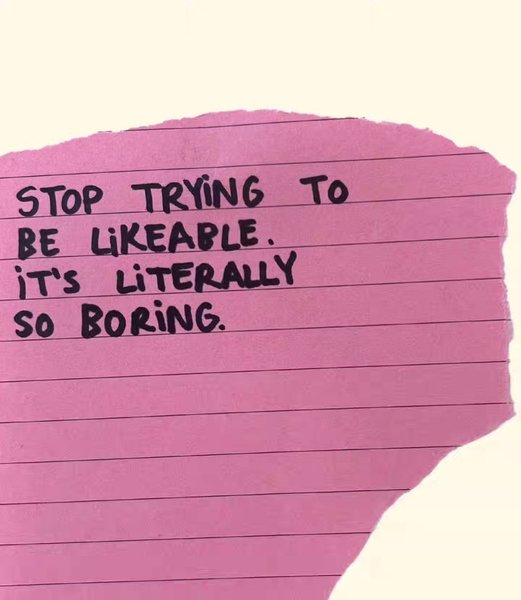 STOP TRYiNG TO
BE LiKEABLE.
iT'S LiTERALLY
SO BORiNG.